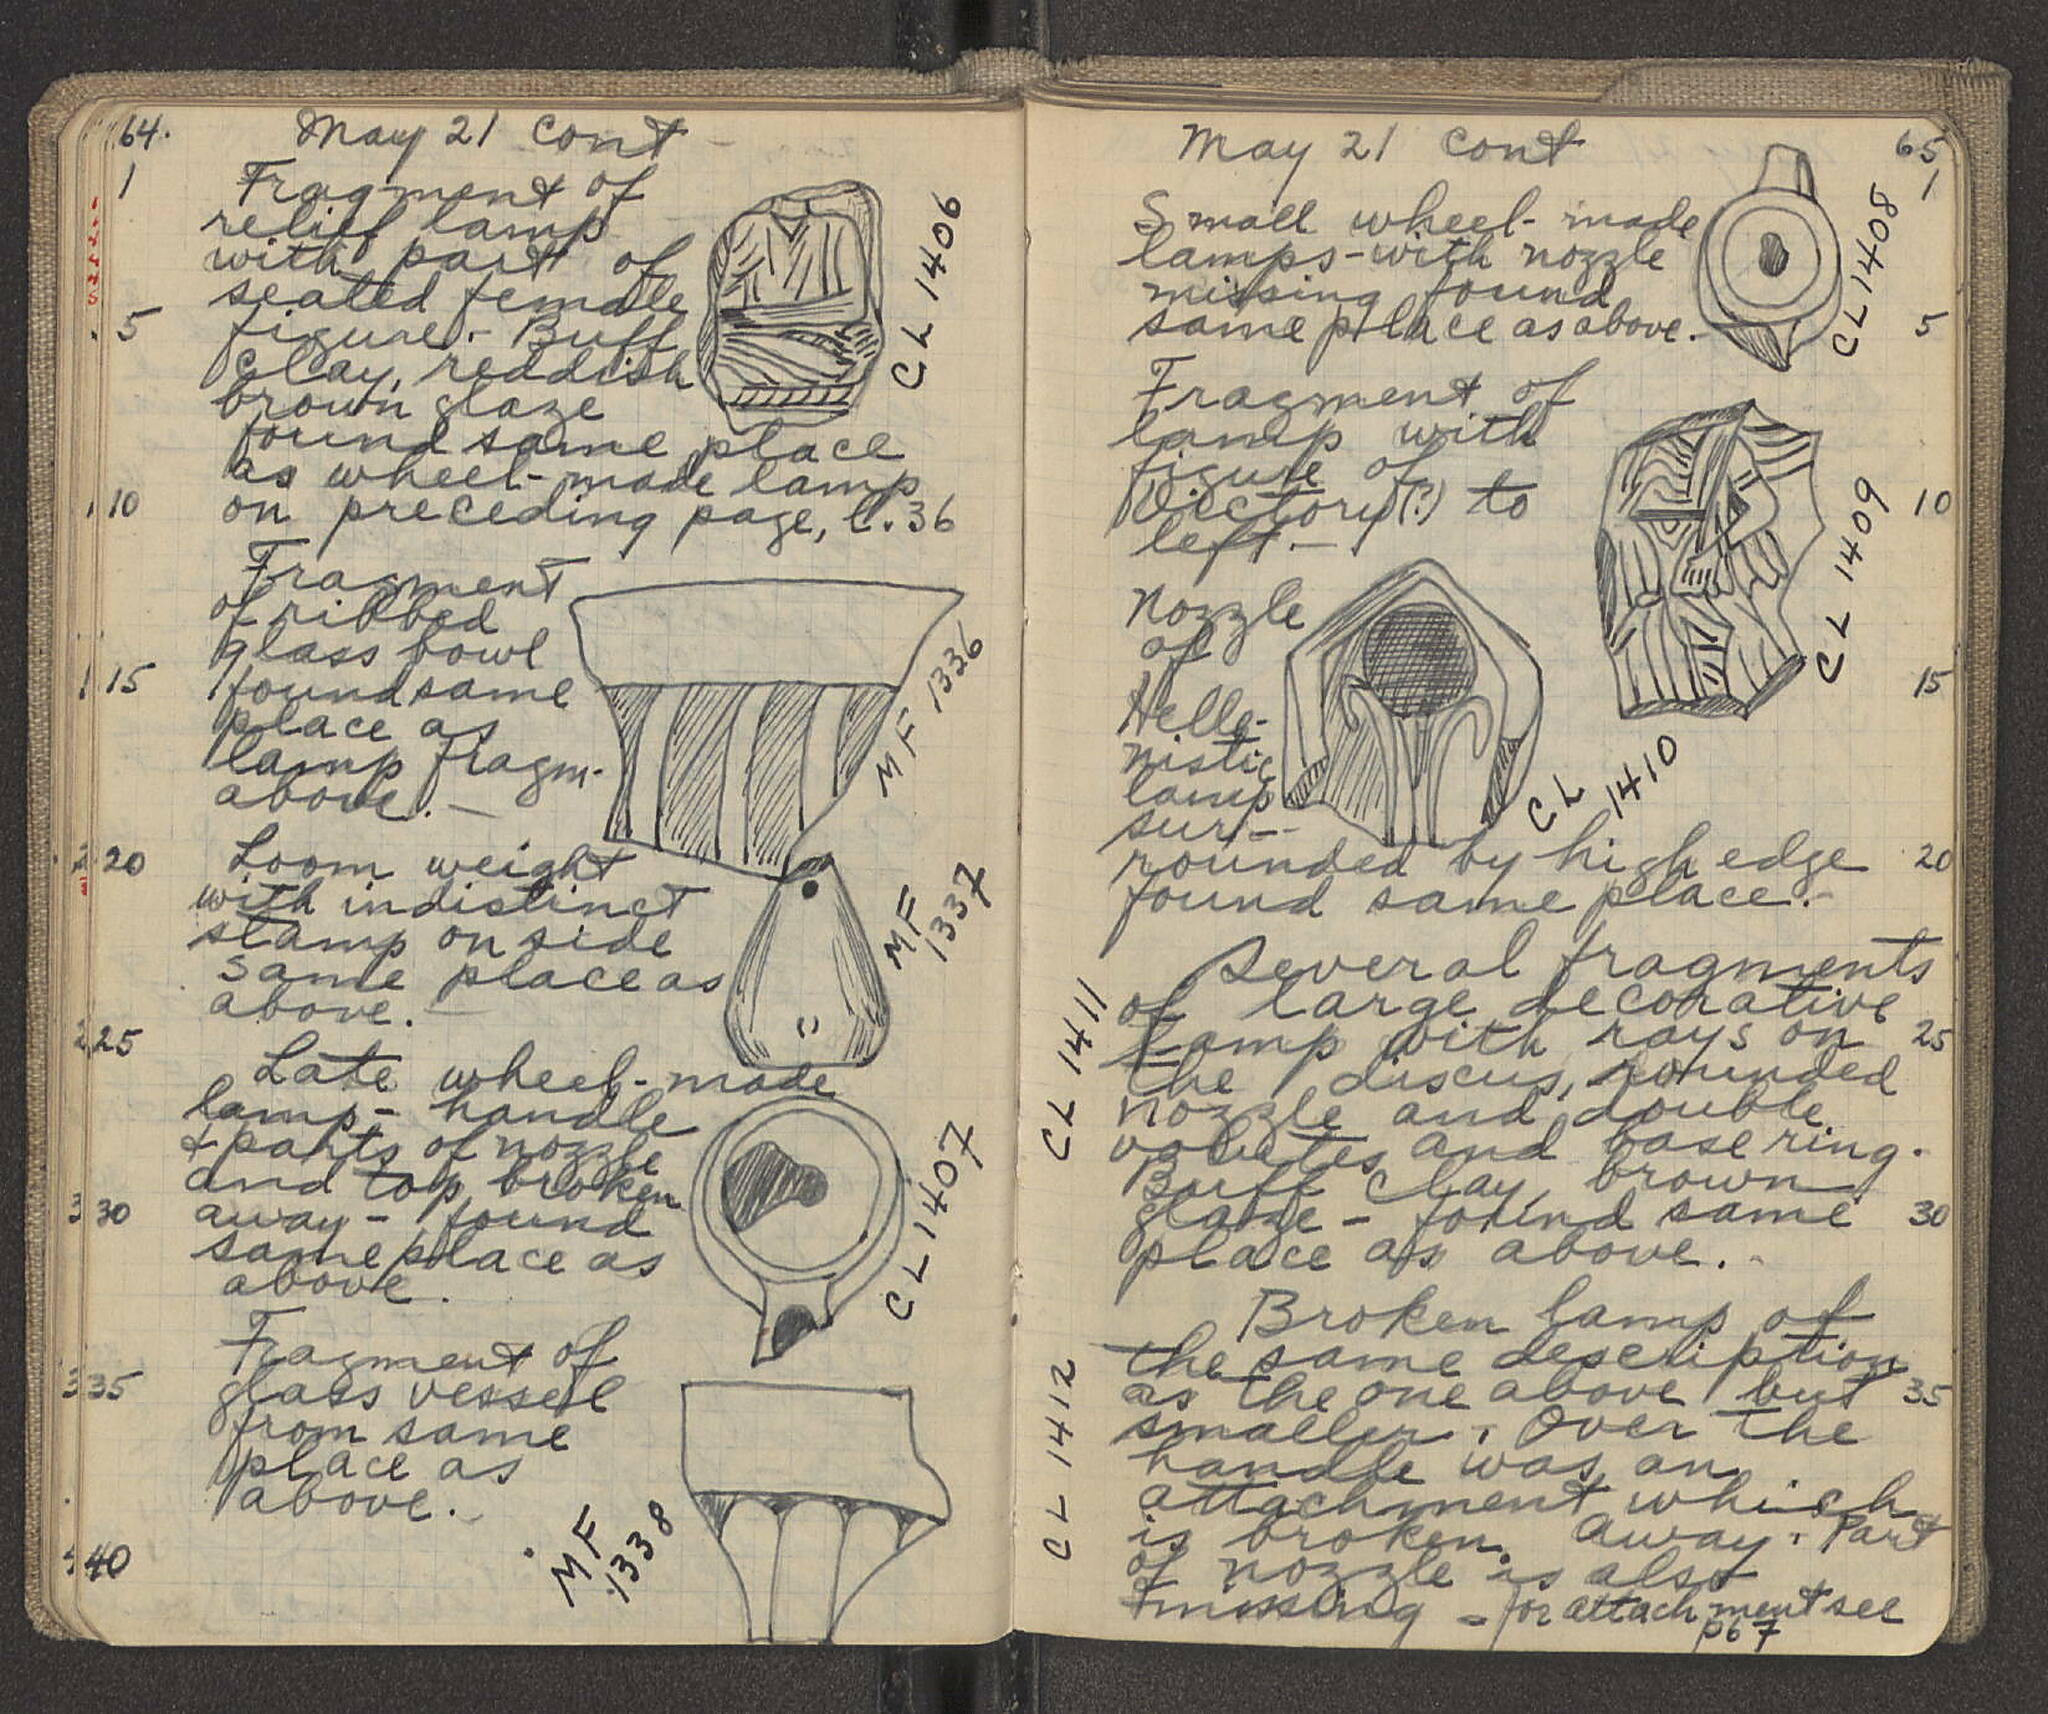 64.
May 21 cont
1
Fragment of
relief lamp
with part of
seated female
5
figure.- Buff
clay, reddish
brown glaze
found same place
as wheel-made lamp
10
on preceding page, l. 36
CL 1406
Fragment
of ribbed
glass bowl
15
found same
place as
lamp fragm.
above.-
MF 1336
20
Loom weight
with indistinct
stamp on side
same place as
above.-
MF
1337
25
Late wheel-made
lamp- handle
& parts of nozzle
and top broken
30
away- found
same place as
above.
CL 1407
Fragment of
35
glass vessel
from same
place as
above.-
MF
1338
40
65
May 21 cont
1
Small wheel-made
lamps-with nozzle
missing found
5
same place as above.-
CL 1408
Fragment of
lamp with
figure of
10
Victory(?) to
left.-
CL 1409
Nozzle
of
15
Helle-
nistic
lamp
sur-
20
rounded by high edge
found same place.-
CL 1410
Several fragments
of large decorative
25
lamp with rays on
the discus, rounded
nozzle and double
volutes and base ring.
Buff clay, brown
30
glaze - found same
place as above.-
CL 1411
Broken lamp of
the same description
35
as the one above but
smaller. Over the
handle was an
attachment which
is broken away. Part
of nozzle is also
missing - for attachment see
p67
CL 1412